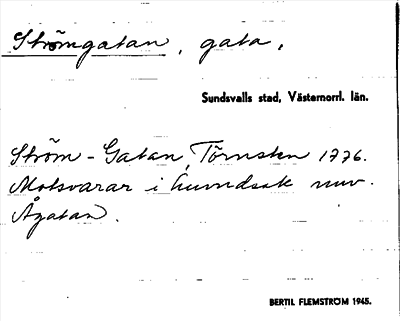 Strömgatan, gata,
Sundsvalls stad, Västernorrl. län.
Ström-Gatan, Törnsten 1776.
Motsvarar i huvudsak nuv.
Ågatan.
BERTIL FLEMSTRÖM 1945.